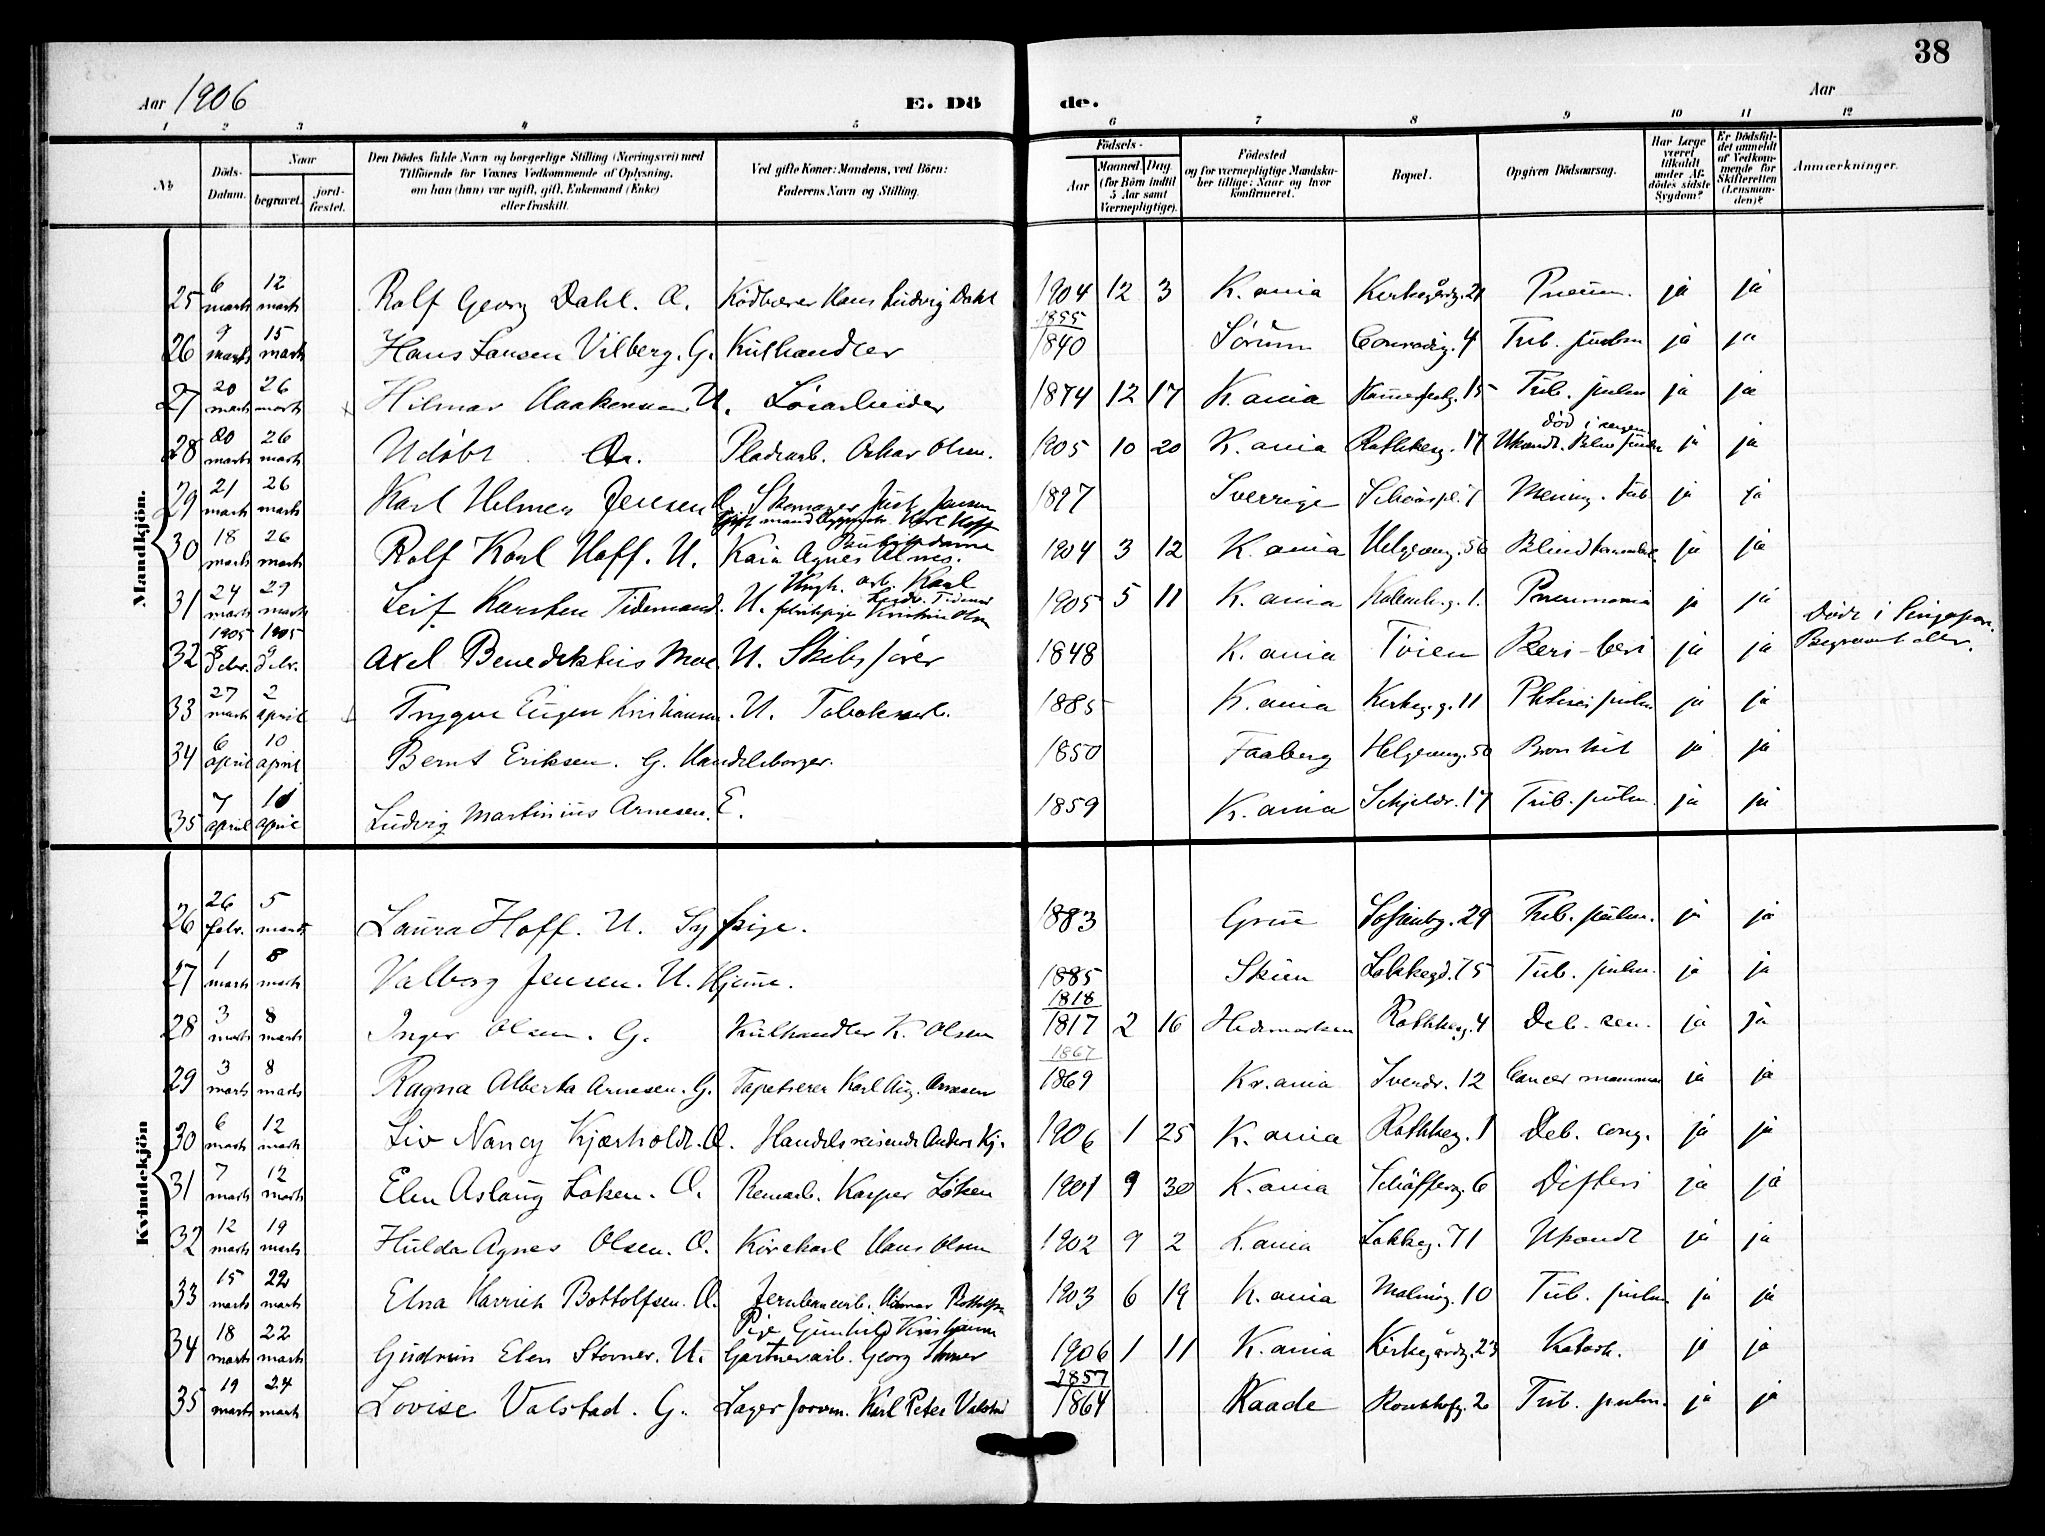 38
Aar 1906
E. Dö
de.
Aar
1 2 3 4 5 6 7 8 9 10 11 12
No
Döds-Datum.
Naar
begravet.
jord-fæstet.
Den Dödes fulde Navn og borgerlige Stilling (Næringsvei) med
Tilföiende for Voxnes Vedkommende af Oplysning,
om han (hun) var ugift, gift, Enkemand (Enke)
eller fraskilt.
Ved gifte Koner: Mandens, ved Börn:
Faderens Navn og Stilling.
Födsels-
Aar
Maaned
Dag
(for Börn indtil
5 Aar samt
Værnepligtige).
Födested
og for værnepligtige Mandska-
ber tillige: Naar og hvor
konfirmeret.
Bopæl.
Opgiven Dödsaarsag.
Har Læge
været
tilkaldt
under Af-
dödes sidste
Sygdom?
Er Dödsfal-
det anmeldt
af Vedkom-
mende for
Skifteretten
(Lensman-
den)?
Anmærkninger.
Mandkjön.
25 6 marts 12 marts Rolf Georg Dahl. Æ. Hans Ludvig Dahl 1904 12 3 K.ania Kirkegårdg. 21 Pneum. ja ja
26 9 marts 15 marts Hans Larsen Vilberg. G. Kulhandler 1855 1840 Sörum Conradig. 4 Tub. pulm ja ja
27 20 marts 26 marts Hilmar Haakonsen U. Lösarbeider 1874 12 17 K.ania 15 Tub. pulm ja ja
28 20 marts 26 marts Udöbt Æ. Pladearb. Oskar Olsen. 1905 10 20 K.ania Rathkeg. 17 död i sengen Ukendt. ja ja
29 21 marts 26 marts Karl Hilmer Jensen Æ. Skomager Just Jensen 1897 Sverrige 7 Mening. tub ja ja
30 18 marts 26 marts Rolf Karl Hoff. U. Gift mand Karl Hoff Kaia Agnes Alnes. 1904 3 12 K.ania Helgesensg. 50 ja ja
31 24 marts 29 marts Leif Karsten Tidemand. U. Ungk. arb. Karl Ludv. Tidemand fabrikpige Kristine Olsen 1905 5 11 K.ania 1. Pneumonia ja ja
32 1905 8 debr. 1905 9 debr. Axel Benediktus Moe U. Skibsförer 1848 K.ania Tvien Beri-beri ja ja Döde i Singapore. Begravet der.
33 27 marts 2 april Trygve Eugen Kristiansen. U. Tobaksarb. 1885 K.ania Kirkeg.g. 11 Phtisis pulm ja ja
34 6 april 10 april Bernt Eriksen. G. Handelsborger. 1850 Faaberg Helgesensg. 50 Bronkit ja ja
35 7 april 11 april Ludvig Martinius Arnesen. E. 1859 K.ania Schjeldr. 17 Tub. pulm. ja ja
Kvindekjön
26 26 febr. 5 marts Laura Hoff. U. Sypige. 1883 Grue Sofienbg. 29 Tub. pulm. ja ja
27 1 marts 8 marts Valborg Jensen. U. Hjemme. 1885 Skien Lakkegd. 75 Tub. pulm. ja ja
28 3 marts 8 marts Inger Olsen. G. Kulhandler K. Olsen 1818 1817 2 16 Hedemarken Rathkeg. 4 Deb. sen. ja ja
29 3 marts 8 marts Ragna Alberta Arnesen. G. Tapetserer Karl Aug. Arnesen 1867 1869 Kr.ania Sverdr. 12 Cancer mammae ja ja
30 6 marts 12 marts Liv Nancy Kjærholdt. Æ. Handelsreisende Anders Kj. 1906 1 25 K.ania Rathkeg. 1 Deb. cong. ja ja
31 7 marts 12 marts Elen Aslaug Löken. Æ. Remarb. Kasper Löken 1901 9 30 K.ania Schäfferg. 6 Difteri ja ja
32 12 marts 19 marts Hulda Agnes Olsen. Æ. Körekarl Hans Olsen 1902 9 2 K.ania Lakkeg. 71 Ukendt ja ja
33 15 marts 22 marts Elna Harriet Bottolfsen. Æ. Jernbanearb. Hilmar Bottolfsen 1903 6 19 K.ania Malmög. 10 Tub. pulm ja ja
34 18 marts 22 marts Gudrun Elen Storner. U. Pige Gunhild Kristiansen Gartnerarb. Georg Storner 1906 1 11 K.ania Kirkegårdg. 23 Katarh. ja ja
35 19 marts 24 marts Lovise Valstad. G. Lagerformn. Karl Peter Valstad 1857 1864 Raade 2 Tub. pulm. ja ja